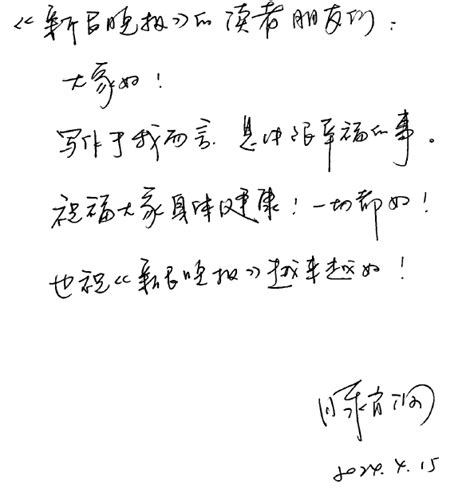 《新民晚报》的读者朋友们:
大家好!
写作于我而言,是件很幸福的事。
祝福大家身体健康!一切都好!
也祝《新民晚报》越来越好!
2024.4.15